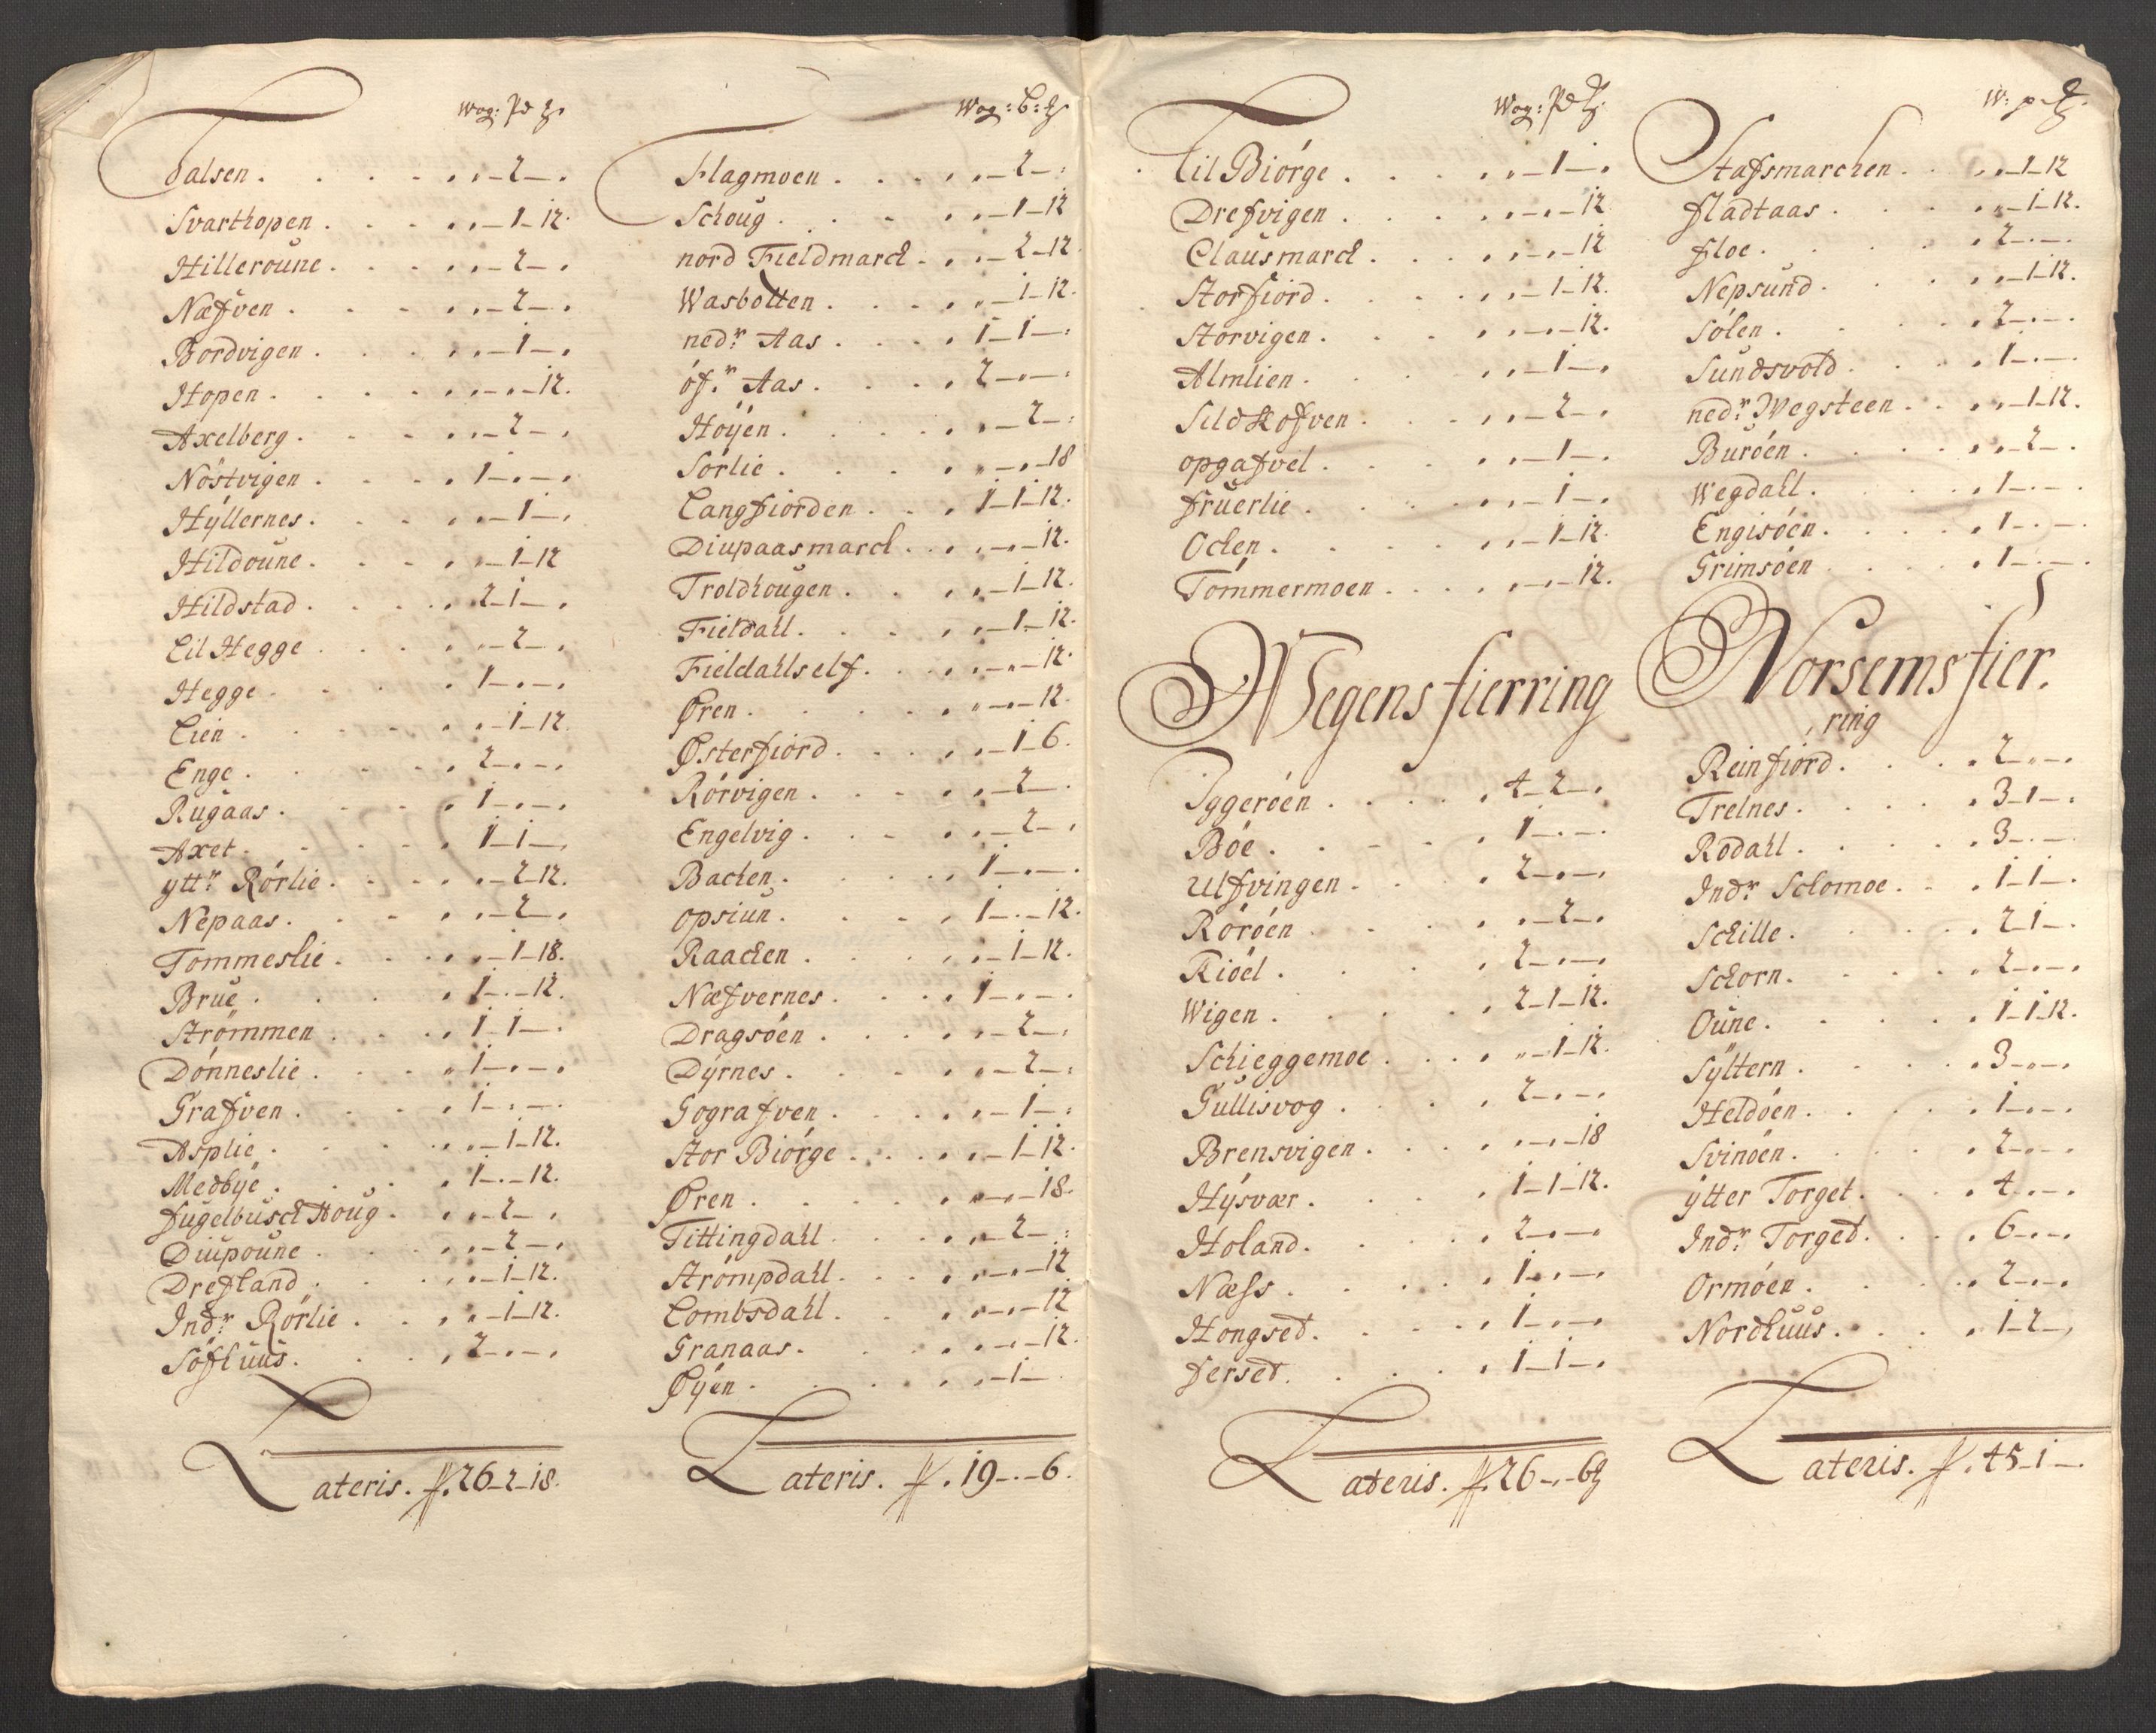 Wog: Pd ℔
Falsen . . . . „ – 2 – „
Svarthopen . . . „ – 1 – 12.
Hilleroune . . . „ – 2 – „
Næfven . . . „ – 2 – „
Bordvigen . . . „ – 1 – „
Hopen . . . „ – „ – 12.
Axelberg . . . „ – 2 – „
Nöstvigen . . . 1 – „ – „
Hÿllernes . . . „ – 1 – „
Hildoune . . . „ – 1 – 12
Hildstad . . . 2 – 1 – „
Lil Hegge . . . „ – 2 – „
Hegge . . . 1 – „ – „
Lien . . . „ – 1 – 12.
Enge . . . 2 – „ – „
Rugaas . . . 1 – „ – „
Axet . . . 1 – 1 – „
ytt.r Rörlie . . . „ – 2 – 12.
Nepaas . . . „ – 2 – „
Tommeslie . . . „ – 1 – 18.
Brue . . . 1 – „ – 12.
Strömmen . . . 1 – 1 – „
Dönneslie . . . 1 – „ – „
Grafven . . . 1 – „ – „
Asplie . . . „ – 1 – 12.
Medbÿe . . . 1 – „ – 12.
fugelbusck Houg . . . „ – 2 – „
Diupoune . . . „ – 2 – „
Drefland . . . „ – 1 – 12.
Ind.r Rörlie . . . „ – 1 – 12.
Söfhuus . . . 2 – „ – „
Lateris . 26 – 2 – 18.
Wog: b: ℔
Flagmoen . . . „ – 2 – „
Schoug . . . „ – 1 – 12
nord Fieldmarck . . . „ – 2 – 12.
Wasbotten . . . „ – 1 – 12.
ned.r Aas . . . 1 – 1 – „
öf.r Aas . . . 2 – „ – „
Höÿen . . . „ – 2 – „
Sörlie . . . „ – „ – 18
Langfiorden . . . 1 – 1 – 12.
Diupaasmarck . . . „ – „ – 12.
Troldhougen . . . „ – 1 – 12.
Fieldahl . . . „ – 1 – 12.
Fieldahlself . . . „ – „ – 12.
Øren . . . „ – „ – 12.
Østerfiord . . . „ – 1 – 6.
Rörvigen . . . „ – 2 – „
Engelvig . . . „ – 2 – „
Backen . . . 1 – „ – „
opsiun . . . 1 – „ – 12.
Raacken . . . „ – 1 – 12.
Næfvernes . . . 1 – „ – „
Dragsöen . . . „ – 2 – „
Dÿrnes . . . „ – 2 – „
Gografven . . . „ – 1 – „
Stor Biörge . . . „ – 1 – 12.
Øren . . . „ – „ – 18.
Tittingdahl . . . „ – 2 – „
Strömpdahl . . . „ – „ – 12
Lombsdahl . . . „ – „ – 12
Granaas . . . „ – „ – 12.
Øÿen . . . „ – 1 – „
Lateris . 19 – „ – 6.
Wog: Pd ℔
Lil Biörge . . . „ – 1 – „
Drefvigen . . . „ – „ – 12
Clausmarck . . . „ – „ – 12
Storfiord . . . „ – 1 – 12.
Storvigen . . . „ – „ – 12.
Almlien . . . „ – 1 – „
Sildskofven . . . „ – 2 – „
opgafvel . . . „ – 1 – „
fruerlie . . . „ – 1 – „
Oclen . . . „ – 1 – 12.
Tömmermoen . . . „ – „ – 12.
Wegens fierring
Yggeröen . . . 4 – 2 – „
Böe . . . 1 – „ – „
Ulfvingen . . . 2 – „ – „
Röröen . . . „ – 2 – „
Kiöel . . . 2 – „ – „
Wigen . . . 2 – 1 – 12.
Schieggemoe . . . „ – 1 – 12.
Gullisvog . . . 2 – „ – „
Brensvigen . . . „ – „ – 18
Hÿsvær . . . 1 – 1 – 12.
Holand . . . 2 – „ – „
Næss . . . 1 – „ – „
Hongsed . . . 1 – „ – „
ferset . . . 1 – 1 – „
Lateris . 26 – „ – 6 ℔
W: p ℔
Stafsmarchen . . . „ – 1 – 12
fladtaas . . . „ – 1 – 12.
floe . . . 2 – „ – „
Nepsund . . . „ – 1 – 12.
Sölen . . . 2 – „ – „
Sundsvold . . . 1 – „ – „
ned.r Wegsteen . . . „ – 1 – 12.
Buröen . . . „ – 2 – „
Wegdahl . . . 1 – „ – „
Engisöen . . . 1 – „ – „
Grimsöen . . . 1 – „ – „
Norsems fier.
ring
Reinfiord . . . 2 – „ – „
Trelnes . . . 3 – 1 – „
Rödahl . . . 3 – „ – „
Ind.r Sclomoe . . . 1 – 1 – „
Schille . . . 2 – 1 – „
Schorn . . . 2 – „ – „
Oune . . . 1 – 1 – 12.
Sÿltern . . . 3 – „ – „
Heldöen . . . 1 – „ – „
Svinöen . . . 2 – „ – „
ÿtter Torget . . . 4 – „ – „
Ind.r Torged . . . 6 – „ – „
Ormöen . . . 2 – „ – „
Nordhuus . . . 1 – 2 – „
Lateris . 45 – 1 – „